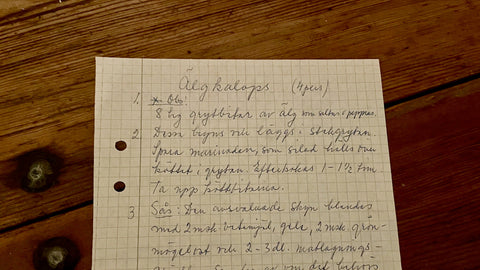 Älgkalops (4 pers)
1. * Obs!
8 big grytbitar av älg som saltas o peppras.
2. Dem bryns och läggs i stekgrytan.
Spara marinaden, som silad hälls över
köttet i grytan. Efterkokas 1-1 1/2 tim
Ta upp köttbitarna.
3. Sås: Den avsvalnade skyn blandas
med 2 msk vetemjöl, gele, 2 msk grön-
mögelost och 2-3 dl. matlagnings-
om det behövs